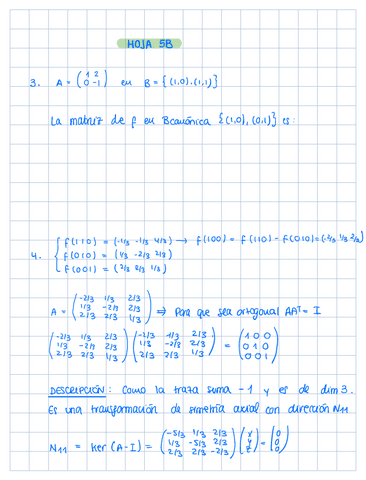 HOJA 5B
3. A = (1 2 / 0 -1) en B = { (1,0), (1,1) }
La matriz de f en Bcanónica { (1,0), (0,1) } es:
f(110) = (-1/3 -1/3 4/3) → f(100) = f(110) - f(010) = (-2/3 1/3 2/3)
4. f(010) = (1/3 -2/3 2/3)
f(001) = (2/3 2/3 1/3)
A = (-2/3 1/3 2/3 / 1/3 -2/3 2/3 / 2/3 2/3 1/3) ⇒ Para que sea ortogonal AAᵗ = I
(-2/3 1/3 2/3 / 1/3 -2/3 2/3 / 2/3 2/3 1/3) (-2/3 1/3 2/3 / 1/3 -2/3 2/3 / 2/3 2/3 1/3) = (1 0 0 / 0 1 0 / 0 0 1)
DESCRIPCIÓN: Como la traza suma -1 y es de dim 3.
Es una transformación de simetría axial con dirección N₁₁
N₁₁ = Ker (A-I) = (-5/3 1/3 2/3 / 1/3 -5/3 2/3 / 2/3 2/3 -2/3) (x / y / z) = (0 / 0 / 0)